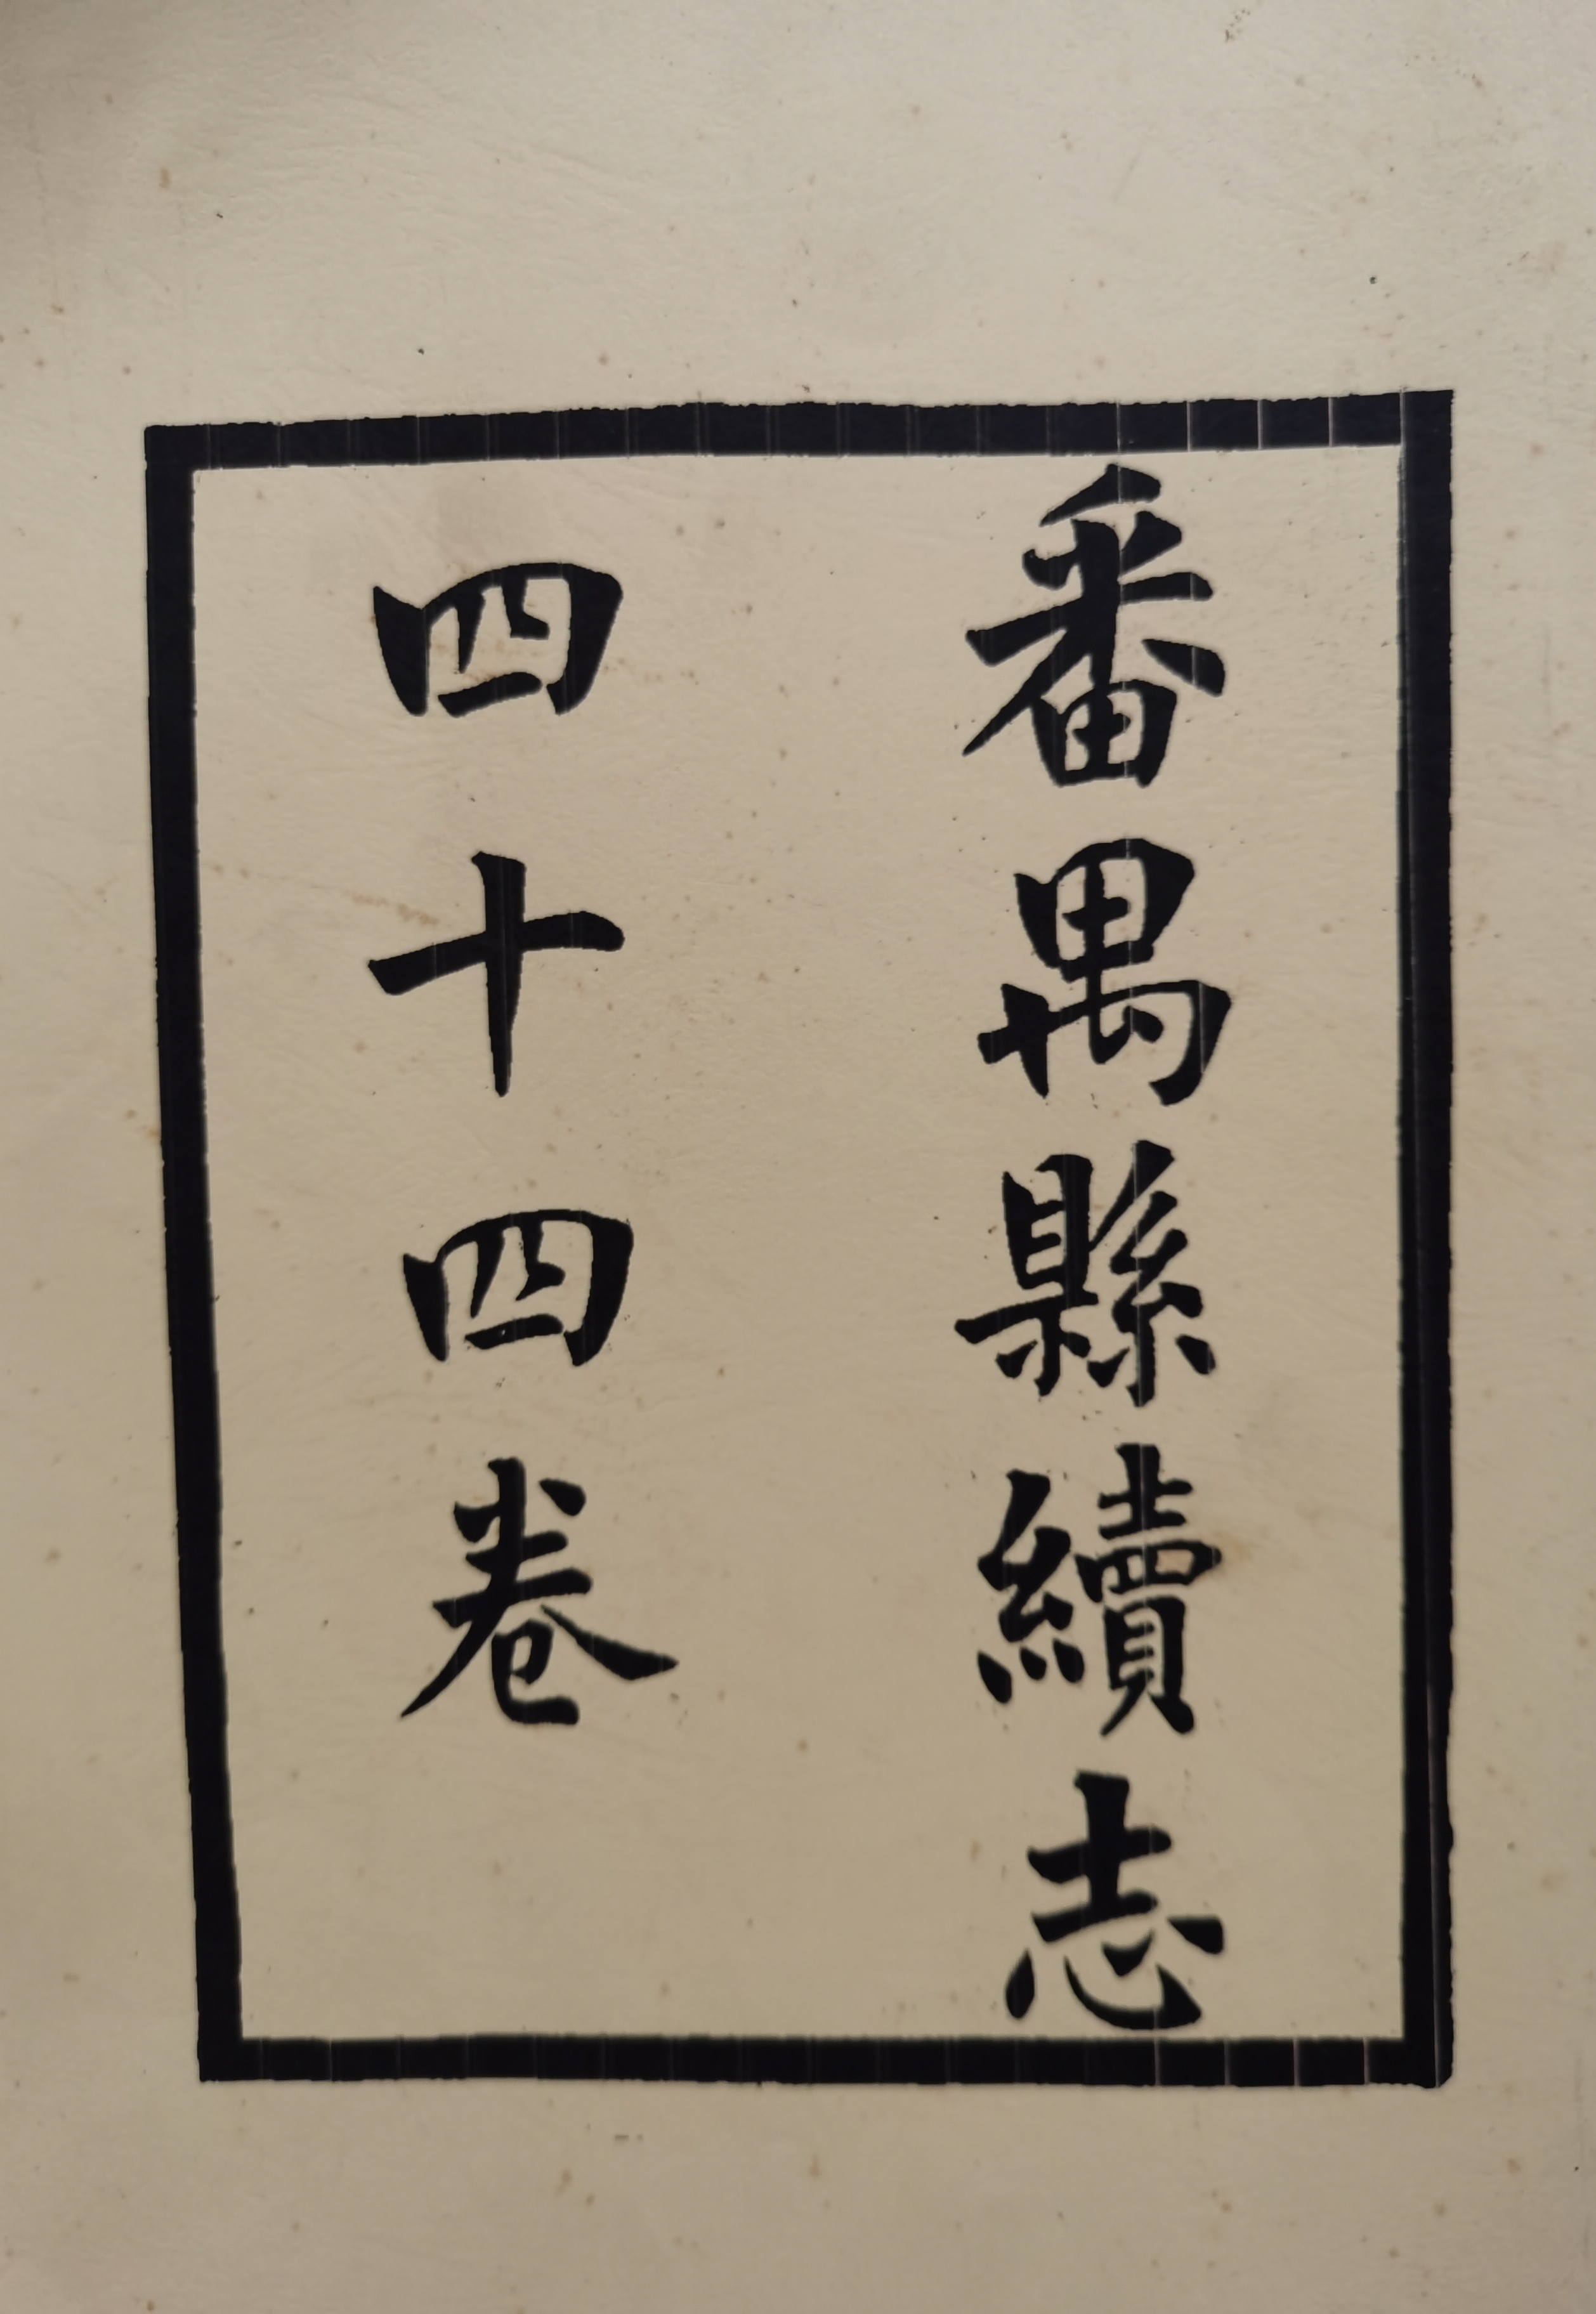 番禺縣續志
四十四卷